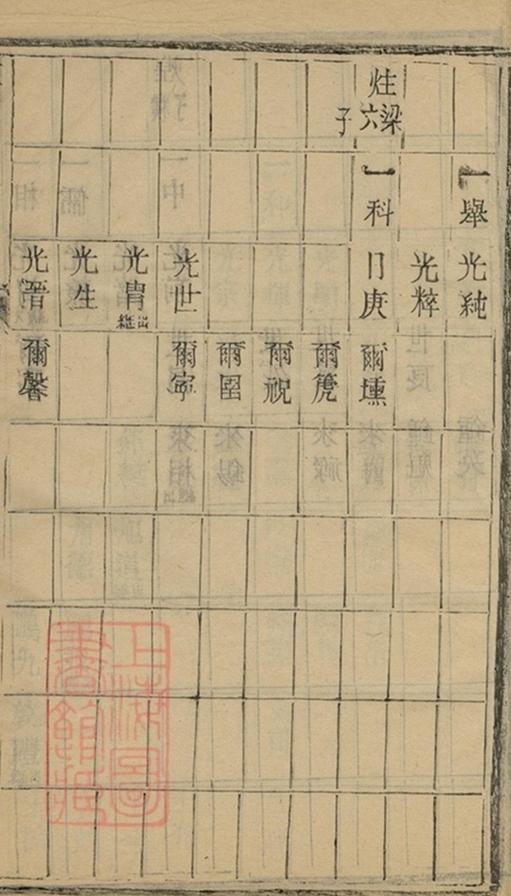 一舉 光純
光粹
炷梁六子 一科 日庚 爾壎
爾箎
爾祝
爾圉
光世 爾寍
光胄出繼
光生
光晉 爾馨
上海圖書館藏